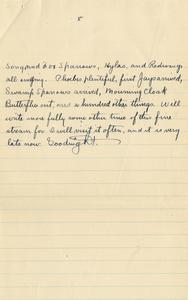 5
Song and Fox Sparrows, Hylas, and Redwings
all singing. Phoebes plentiful, first Jay arrived,
Swamp Sparrows arrived, Mourning Cloak
Butterflies out, and a hundred other things. Will
write more fully some other time of this fine
stream for I will visit it often, and it is very
late now. Goodnight.